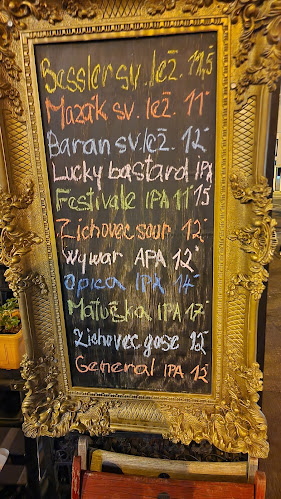 Bessler sv. lež. 11,5
Mazák sv. lež. 11°
Baran sv. lež. 12°
Lucky bastard IPA
Festivale IPA 11 15
Zichovec sour 12°
Wywar APA 12°
Opica IPA 17°
Matuška IPA 17°
Zichovec gose 12°
General IPA 12°